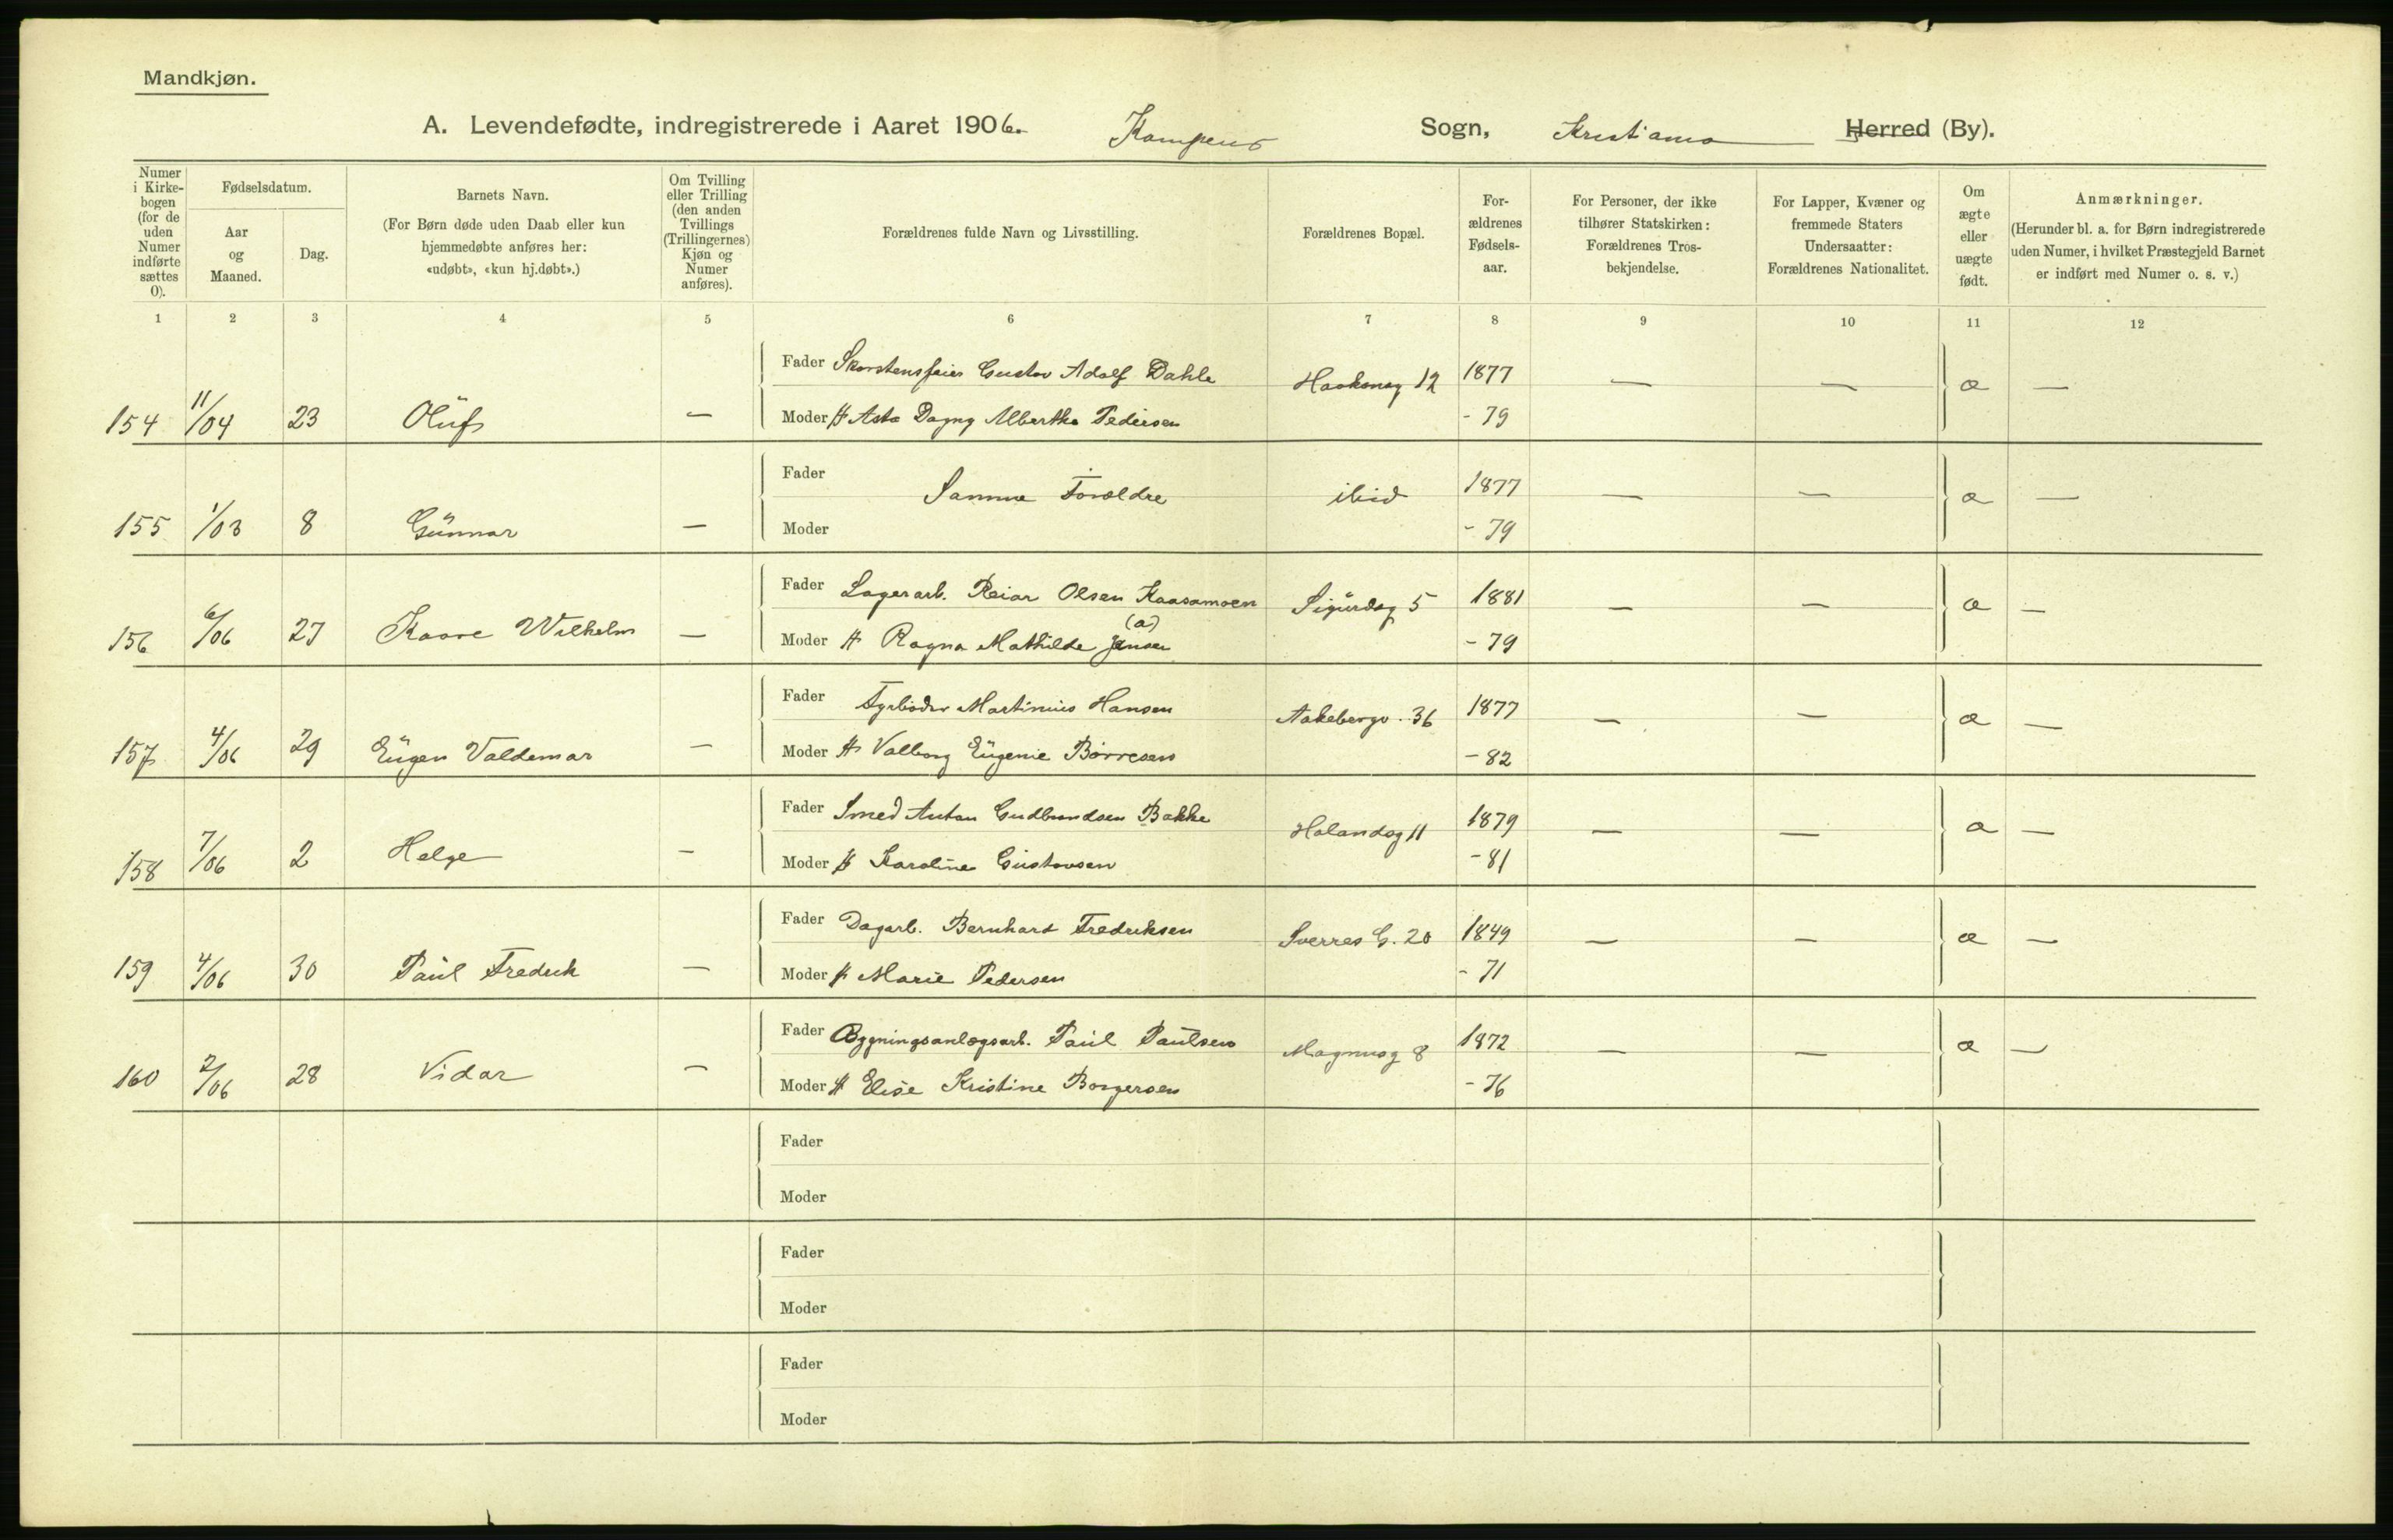 Mandkjøn.
A. Levendefødte, indregistrerede i Aaret 1906. Kampens Sogn, Kristiania Herred (By).
Numer i Kirkebogen (for de uden Numer indførte sættes 0).
Fødselsdatum.
Aar og Maaned.
Dag.
Barnets Navn.
(For Børn døde uden Daab eller kun hjemmedøbte anføres her: «udøbt», «kun hj.døbt».)
Om Tvilling eller Trilling (den anden Tvillings (Trillingernes) Kjøn og Numer anføres).
Forældrenes fulde Navn og Livsstilling.
Forældrenes Bopæl.
Forældrenes Fødselsaar.
For Personer, der ikke tilhører Statskirken: Forældrenes Trosbekjendelse.
For Lapper, Kvæner og fremmede Staters Undersaatter: Forældrenes Nationalitet.
Om ægte eller uægte født.
Anmærkninger.
(Herunder bl. a. for Børn indregistrerede uden Numer, i hvilket Præstegjeld Barnet er indført med Numer o. s. v.)
1 2 3 4 5 6 7 8 9 10 11 12
Fader Skorstensfeier Gustav Adolf Dahle Haakonsg 12 1877 — — æ —
154 11/04 23 Oluf — Moder H Asta Dagny Albertha Pedersen - 79
Fader Samme Forældre ibid 1877 — — æ —
155 1/03 8 Gunnar — Moder - 79
Fader Lagerarb. Reiar Olsen Kaasamoen Sigurdsg 5 1881 — — æ —
156 6/06 27 Kaare Wilhelm — Moder H Ragna Mathilde Jensen (a) - 79
Fader Fyrbøder Martinius Hansen Aakebergv. 36 1877 — — æ —
157 4/06 29 Eugen Valdemar — Moder H Valborg Eugenie Børresen - 82
Fader Smed Anton Gudbrandsen Bakke Hølandsg 11 1879 — — æ —
158 7/06 2 Helge — Moder H Karoline Gustavsen - 81
Fader Dagarb. Bernhard Fredriksen Sverres G. 20 1849 — — æ —
159 4/06 30 Paul Fredrik — Moder H Marie Pedersen - 71
Fader Bygningsanlægsarb. Paul Paulsen Magnusg 8 1872 — — æ —
160 2/06 28 Vidar — Moder H Elise Kristine Borgersen - 76
Fader
Moder
Fader
Moder
Fader
Moder